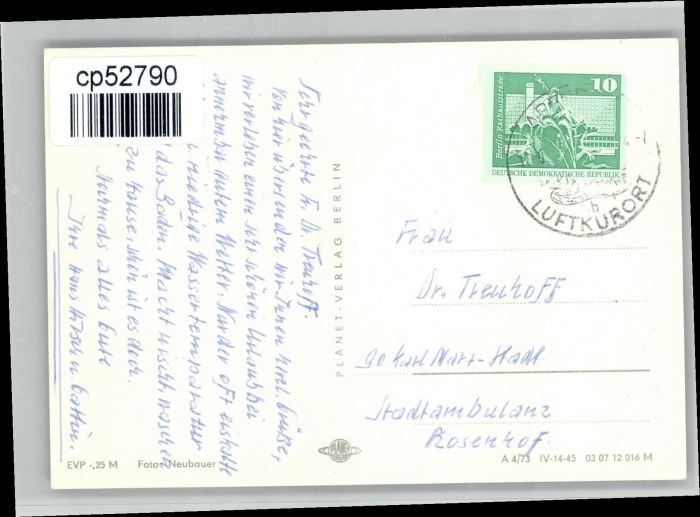 cp52790
Sehr geehrte Fr. Dr. Treuhoff.
Von hier übersenden wir Ihnen herzl. Grüße,
wir verleben einen sehr schönen Urlaub bei
annehmbar gutem Wetter. Nur der oft eiskalte
niedrige Wassertemperatur
das Baden. Macht nischt
zu Hause schön ist es doch.
Nochmals alles Gute
Ihre Hans u. Gattin.
PLANET-VERLAG BERLIN
10
Berlin Rathausstraße
DEUTSCHE DEMOKRATISCHE REPUBLIK
b
LUFTKURORT
Frau
Dr. Treuhoff
90 Karl Marx-Stadt.
Stadtambulanz
Rosenhof.
EVP -,25 M Foto: Neubauer
PLANET
A 4/73 IV-14-45 03 07 12 016 M